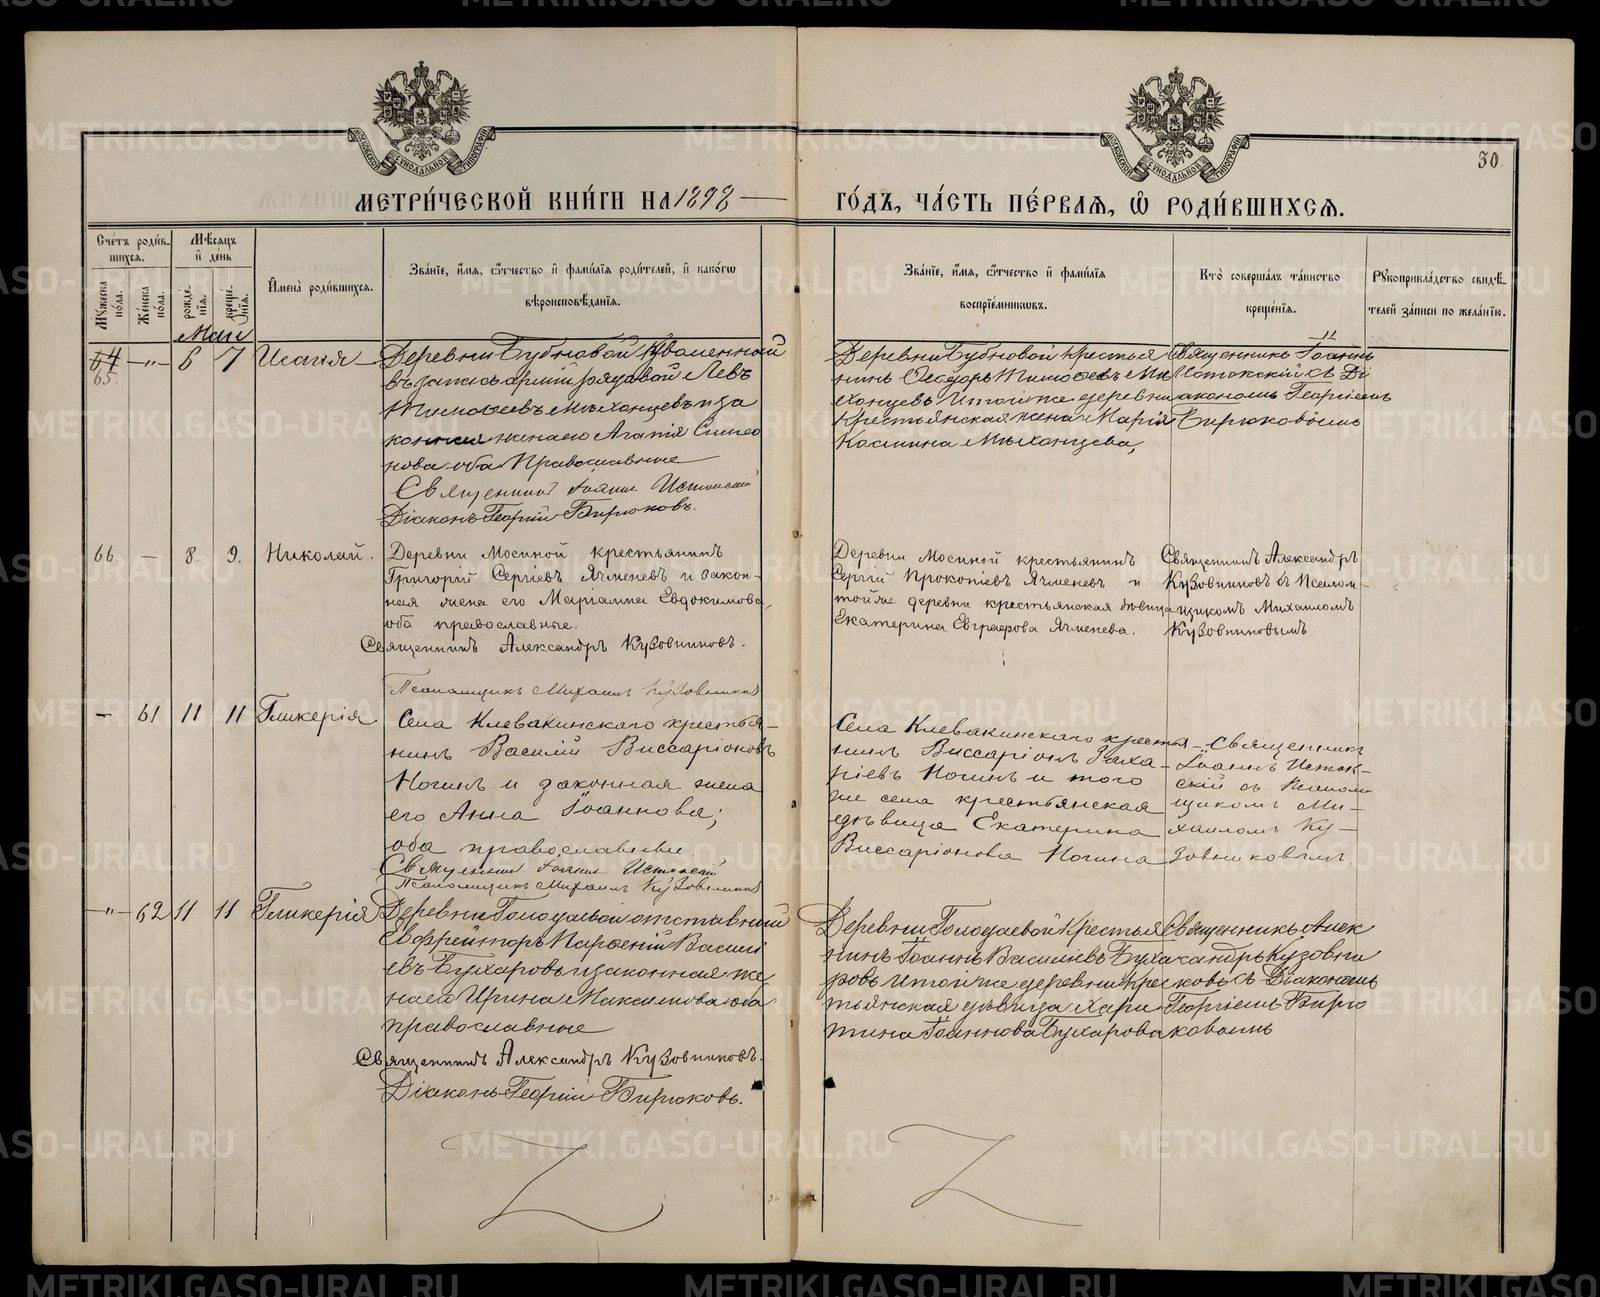 МЕТРИ́ЧЕСКОЙ КНИ́ГИ НА 1898
ГО́ДЪ, ЧА́СТЬ ПЕ́РВАѦ, Ѽ РОДИ́ВШИХСѦ.
30
Сче́тъ роди́в-
шихсѧ.
Мꙋ́жеска по́ла.
Же́нска по́ла.
Мѣ́сѧцъ
и҆ де́нь
рожде́нїѧ.
креще́нїѧ.
И҆мена̀ роди́вшихсѧ.
Зва́нїе, и҆́мѧ, ѻ҆́тчество и҆ фами́лїѧ роди́телей, и҆ како́гѡ
вѣроисповѣ́данїѧ.
Зва́нїе, и҆́мѧ, ѻ҆́тчество и҆ фами́лїѧ
воспрїе́мникѡвъ.
Кто̀ соверша́лъ та́инство
креще́нїѧ.
Рꙋкоприкла́дство свидѣ́-
телей за́писи по жела́нїю.
Маи
64 65. —"— 6 7 Исаія
Деревни Бубновой Уволенный
въ запасъ арміи рядовой Левъ
Тимоѳеевъ Мѣханцевъ и за
конная жена его Агапія Симео
нова оба Православные
Священникъ Іоаннъ Истокскій
Діаконъ Георгій Бирюковъ.
Деревни Бубновой крестья
нинъ Ѳеодоръ Тимоѳеевъ Мѣ
ханцевъ и той же деревни
Крестьянская жена Марія
Космина Мѣханцева,
Священникъ Іоаннъ
Истокскій съ Ді
акономъ Георгіемъ
Бирюковымъ
66. — 8. 9. Николай.
Деревни Мосиной крестьянинъ
Григорій Сергіевъ Ячменевъ и закон-
ная жена его Маріамна Евдокимова,
оба православные.
Священникъ Александръ Кузовниковъ.
Псаломщикъ Михаилъ Кузовников
Деревни Мосиной крестьянинъ
Сергій Прокопіевъ Ячменевъ и
той же деревни крестьянская дѣвица
Екатерина Евграфова Ячменева.
Священникъ Александръ
Кузовниковъ съ Псалом-
щикомъ Михаиломъ
Кузовниковымъ.
— 61 11 11 Гликерія
Села Клевакинскаго крестья-
нинъ Василій Виссаріоновъ
Ногинъ и законная жена
его Анна Іоаннова;
оба православные.
Священникъ Іоаннъ Истокскій
Псаломщикъ Михаилъ Кузовников
Села Клевакинскаго крестья-
нинъ Виссаріонъ Заха-
ріевъ Ногинъ и того
же села крестьянская
дѣвица Екатерина
Виссаріонова Ногина
Священникъ
Іоаннъ Исток-
скій съ Псалом
щикомъ Ми-
хаиломъ Ку-
зовниковымъ.
—"— 62 11 11 Гликерія
Деревни Голодаевой отставный
Ефрейторъ Парѳеній Василі
евъ Бухаровъ и законная же
на его Ирина Максимова оба
православные
Священникъ Александръ Кузовниковъ.
Діаконъ Георгій Бирюковъ.
Деревни Голодаевой Крестья
нинъ Іоаннъ Василіевъ Буха
ровъ и той же деревни Крес
тьянская дѣвица Хари
тина Іоаннова Бухарова
Священникъ Алек
сандръ Кузовни
ковъ съ Діакономъ
Георгіемъ Бирю
ковымъ
METRIKI.GASO-URAL.RU